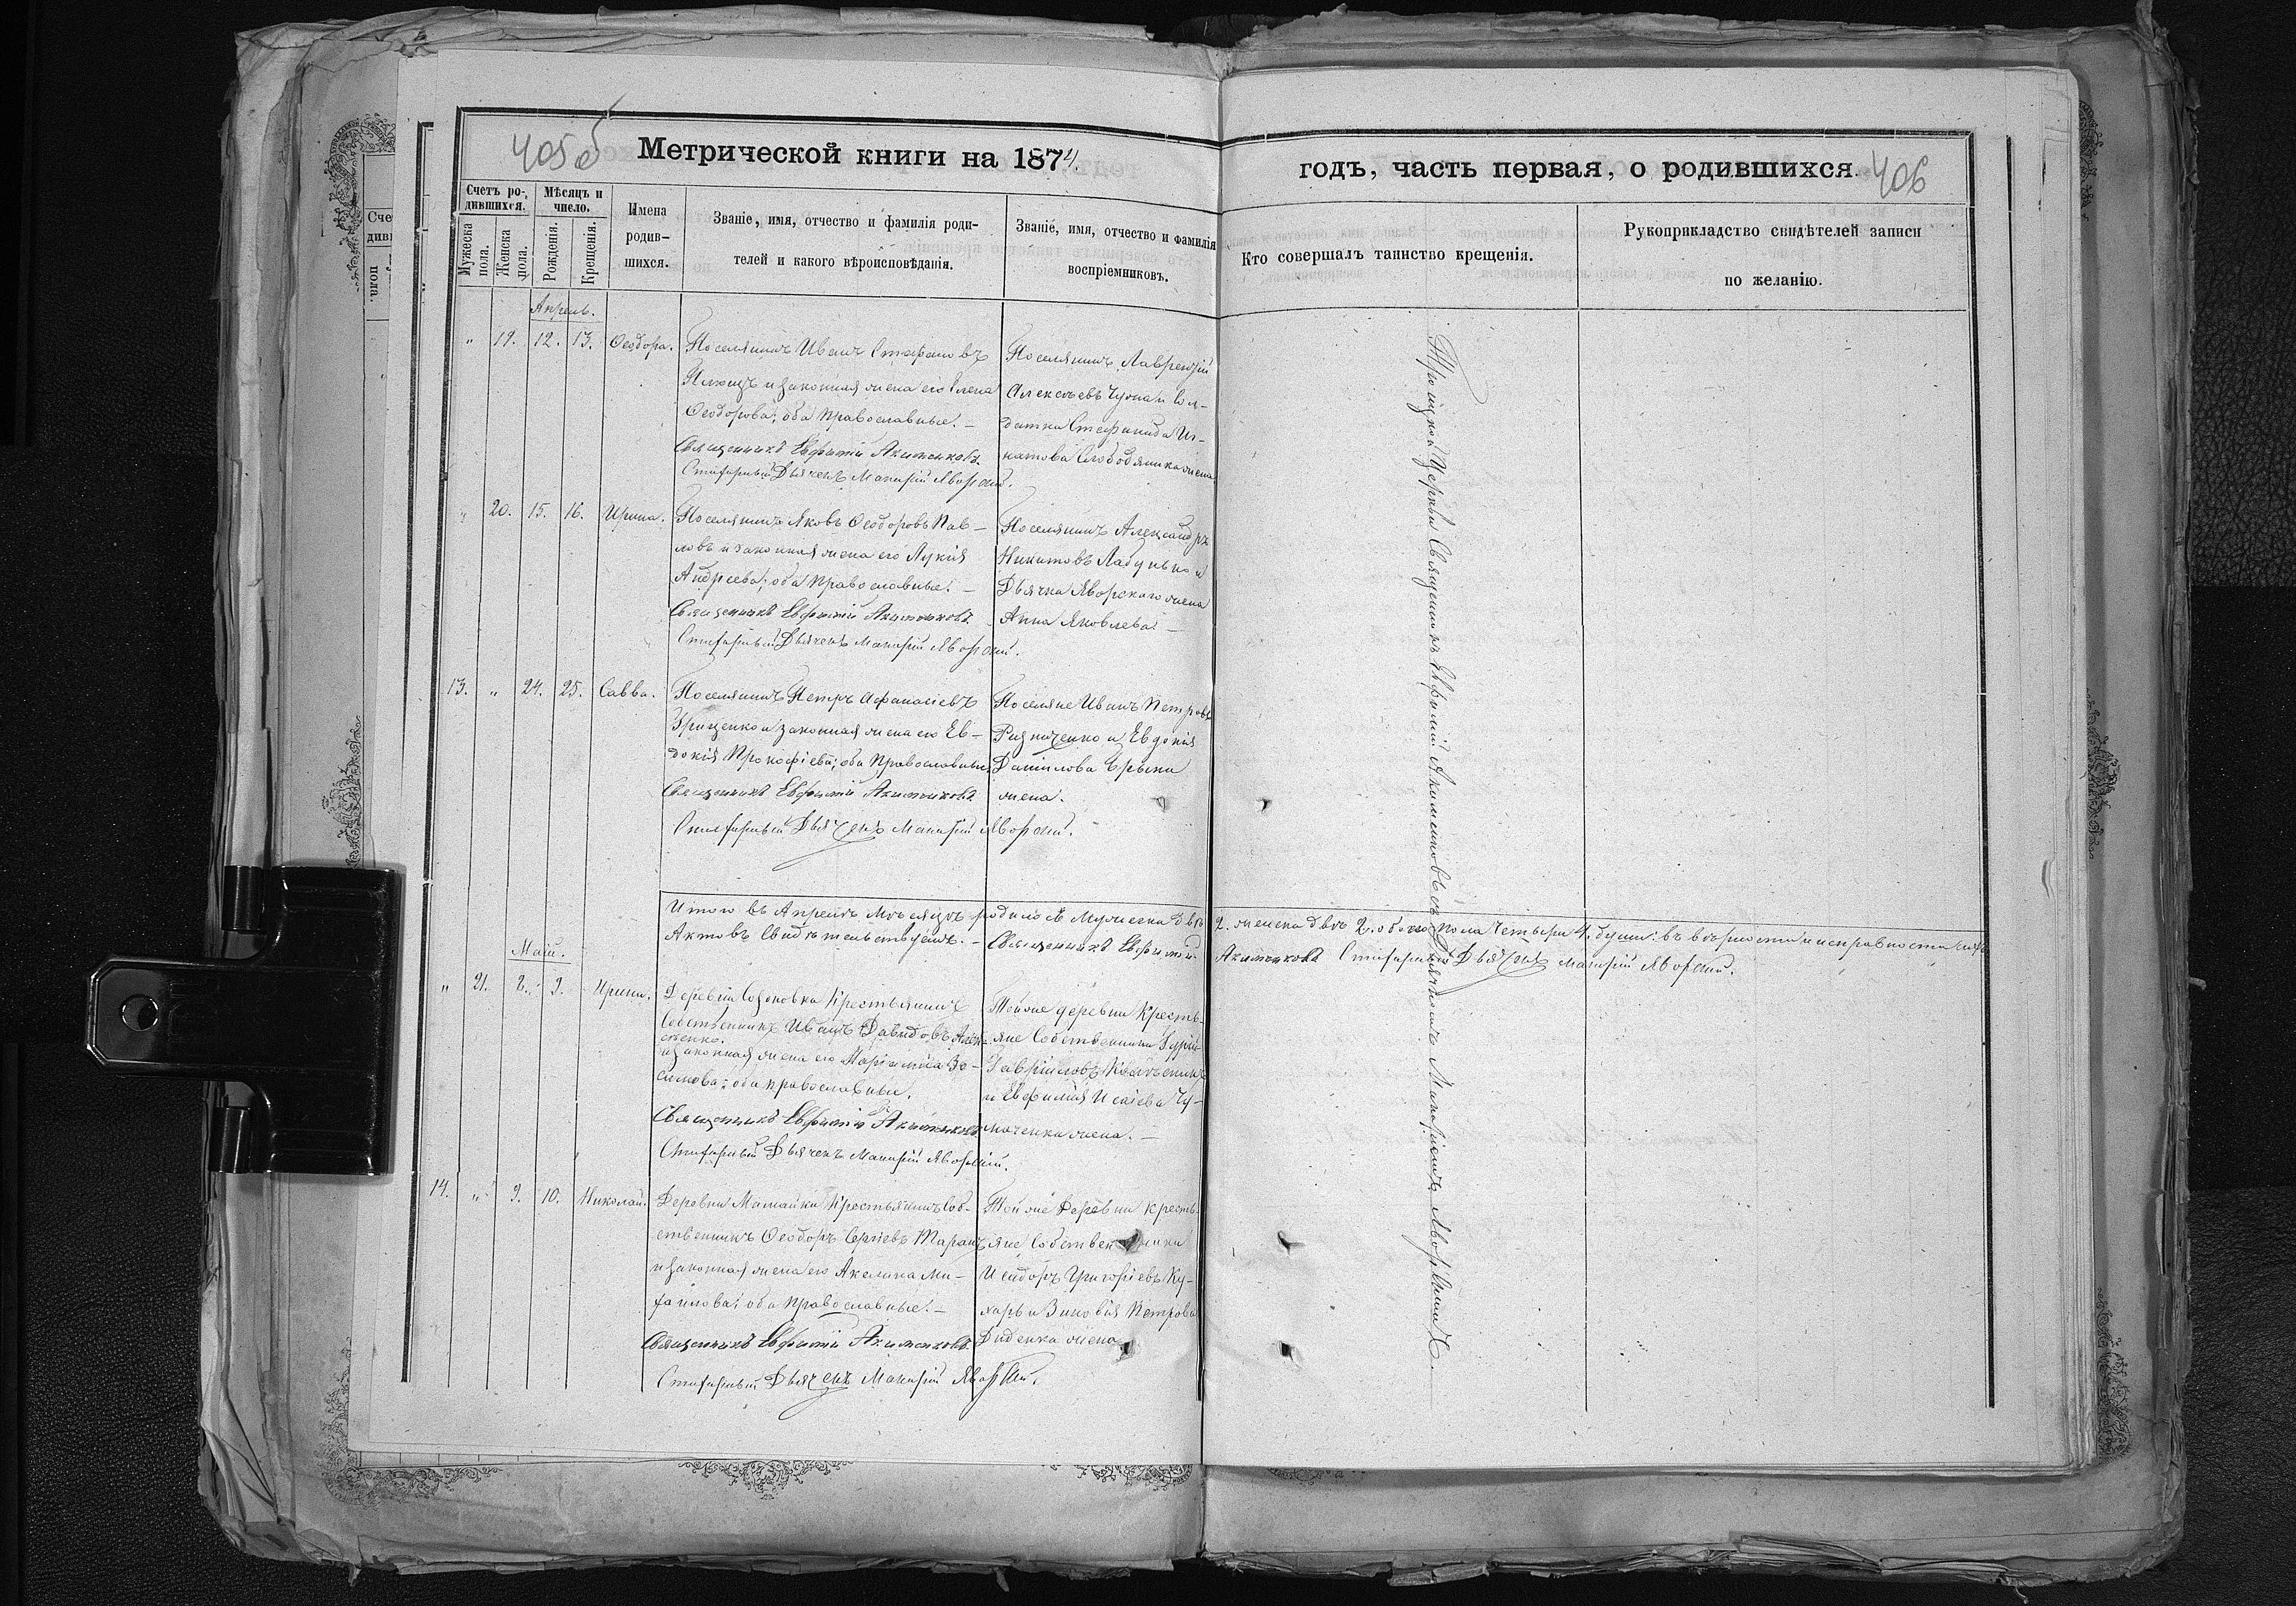 405 б
Метрической книги на 1874
годъ, часть первая, о родившихся.
406
Счетъ родившихся.
Мѣсяцъ и число.
Имена родившихся.
Званіе, имя, отчество и фамилія родителей и какого вѣроисповѣданія.
Званіе, имя, отчество и фамилія воспріемниковъ.
Кто совершалъ таинство крещенія.
Рукоприкладство свидѣтелей записи по желанію.
Мужеска пола.
Женска пола.
Рожденія.
Крещенія.
Апрель.
" 19. 12. 13. Ѳеодора.
Поселянинъ Иванъ Стефановъ
и законная жена его Елена
Ѳеодорова; оба православные. –
Священникъ Евфимій Акименковъ
Стихарный Дьячекъ Макарій Яворский.
Поселянинъ Лаврентій
Алексѣевъ и сол-
датка Стефанида Иг-
натова жена
" 20. 15. 16. Ирина.
Поселянинъ Яковъ Ѳеодоровъ Пав-
ловъ и законная жена его Лукія
Андреева; оба православные. –
Священникъ Евфимій Акименковъ
Стихарный Дьячекъ Макарій Яворский.
Поселянинъ Александръ
Никитовъ Лабунько и
Дьячка Яворскаго жена
Анна Яковлева. –
13. " 24. 25. Савва.
Поселянинъ Петръ Афанасіевъ
Грищенко и законная жена его Ев-
докія Прокофіева; оба православные
Священникъ Евфимій Акименковъ
Стихарный Дьячекъ Макарій Яворский.
Поселяне Иванъ Петровъ
и Евдокія
Данилова
жена.
Итого въ Апрелѣ Мѣсяцѣ родилось мужеска двѣ 2. женска двѣ 2. обоего пола четыри 4. души: въ верности и исправности сихъ
Актовъ Свидѣтельствуемъ. – Священникъ Евфимій Акименковъ Стихарный Дьячекъ Макарій Яворский.
Май.
" 21. 8. 9. Ирина.
Деревни Созоновка Крестьянинъ
Собственникъ Иванъ Давидовъ
и законная жена его Маріамна Зо-
симова; оба православные.
Священникъ Евфимій Акименковъ
Стихарный Дьячекъ Макарій Яворский.
Той же деревни Кресть-
яне Собственники Гурій
Гавриловъ
и Евфимія Исаіева Чу-
маченка жена. –
14. " 9. 10. Николай.
Деревни Мамайки Крестьянинъ Соб-
ственникъ Ѳеодоръ Сергіевъ Таранъ
и законная жена его Акилина Ми-
хаилова; оба православные. –
Священникъ Евфимій Акименковъ
Стихарный Дьячекъ Макарій Яворский.
Той же Деревни Кресть-
яне Собственники
Исидоръ Григоріевъ Ку-
харь и Зиновія Петрова
Диденка жена
Троицкой Церкви Священникъ Евфимій Акименковъ съ Дьячкомъ Макаріемъ Яворскимъ.